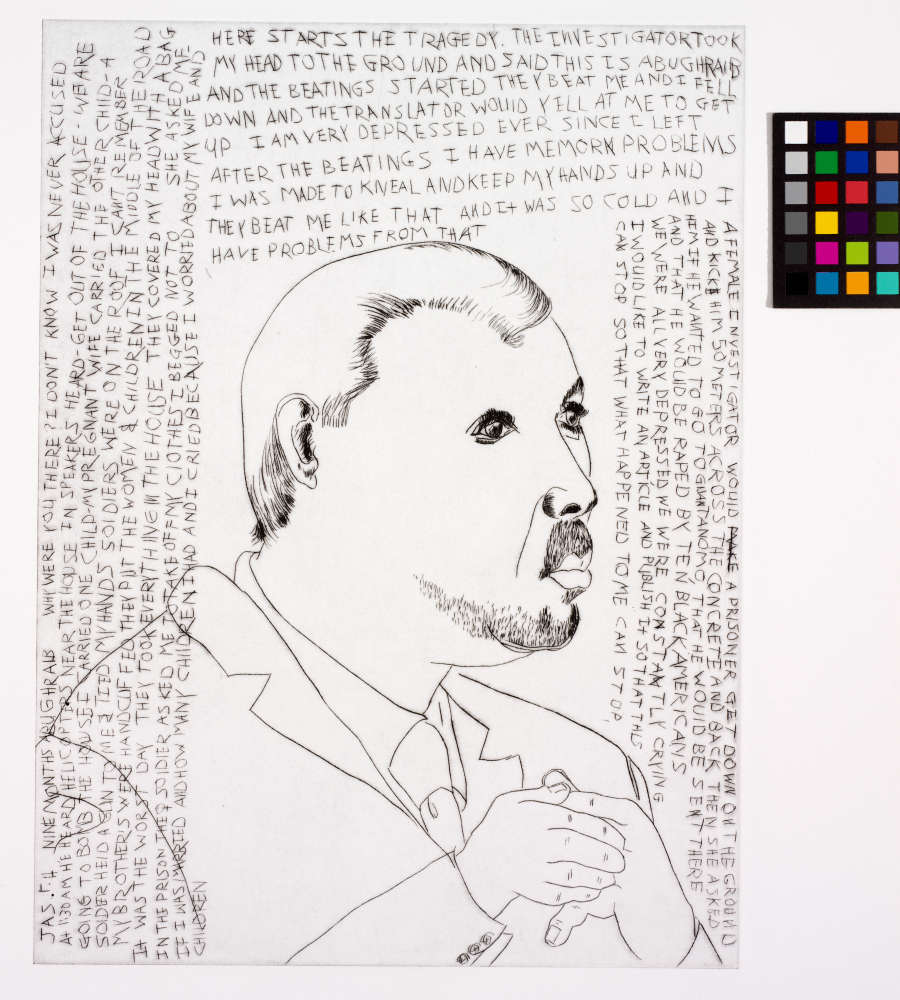 JAS. F. H NINE MONTHS ABUGHRAIB WHY WERE YOU THERE? I DON'T KNOW I WAS NEVER ACCUSED
AT 1:30 AM HE HEARD HELICOPTERS NEAR THE HOUSE IN SPEAKERS HEARD-GET OUT OF THE HOUSE-WE ARE
GOING TO BOMB THE HOUSE I CARRIED ONE CHILD-MY PREGNANT WIFE CARRIED THE OTHER CHILD-A
SOLDER HELD A GUN TO ME & TIED MY HANDS SOLDIERS WERE ON THE ROOF I CANT REMEMBER
MY BROTHER'S WERE HANDCUFFED THEY PUT THE WOMEN & CHILDREN IN THE MIDDLE OF THE ROAD
IT WAS THE WORST DAY THEY TOOK EVERYTHING IN THE HOUSE THEY COVERED MY HEAD WITH A BAG
IN THE PRISON THE SOLDIER ASKED ME TO TAKE OFF MY CLOTHES I BEGGED NOT TO SHE ASKED ME-
IF I WAS MARRIED AND HOW MANY CHILDREN I HAD AND I CRIED BECAUSE I WORRIED ABOUT MY WIFE AND
CHILDREN
HERE STARTS THE TRAGEDY. THE INVESTIGATOR TOOK
MY HEAD TO THE GROUND AND SAID THIS IS ABUGHRAIB
AND THE BEATINGS STARTED THEY BEAT ME AND I FELL
DOWN AND THE TRANSLATOR WOULD YELL AT ME TO GET
UP I AM VERY DEPRESSED EVER SINCE I LEFT
AFTER THE BEATINGS I HAVE MEMORN PROBLEMS
I WAS MADE TO KNEAL AND KEEP MY HANDS UP AND
THEY BEAT ME LIKE THAT AND IT WAS SO COLD AND I
HAVE PROBLEMS FROM THAT
A FEMALE INVESTIGATOR WOULD MAKE A PRISONER GET DOWN ON THE GROUND
AND KICK HIM 50 METERS ACROSS THE CONCRETE AND BACK THEN SHE ASKED
HEM IF HE WANTED TO GO TO GUANTANOMO THAT HE WOULD BE SENT THERE
AND THAT HE WOULD BE RAPED BY TEN BLACK AMERICANS
WE WERE ALL VERY DEPRESSED WE WERE CONSTANTLY CRYING
I WOULD LIKE TO WRITE AN ARTICLE AND PUBLISH IT SO THAT THIS
CAN STOP SO THAT WHAT HAPPENED TO ME CAN STOP,